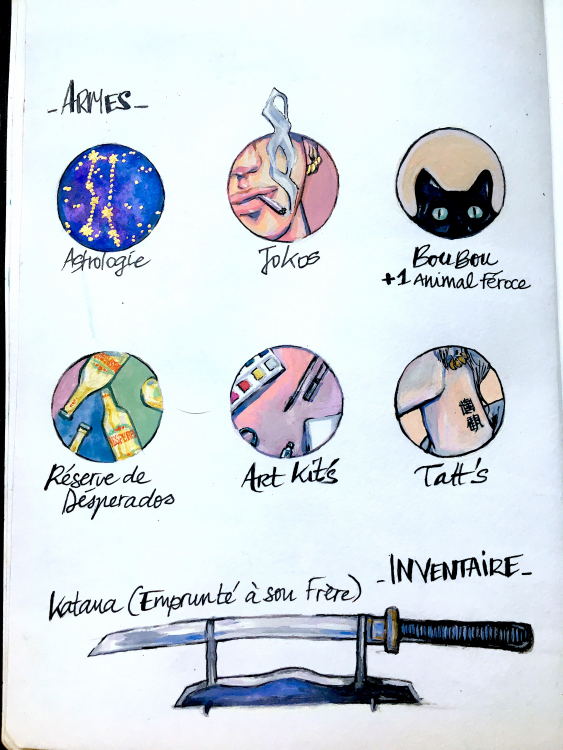 _ARMES_
Astrologie
Jokos
BouBou
+1 Animal Féroce
Réserve de
Désperados
Art Kit's
Tatt's
_INVENTAIRE_
Katana (Emprunté à son Frère)